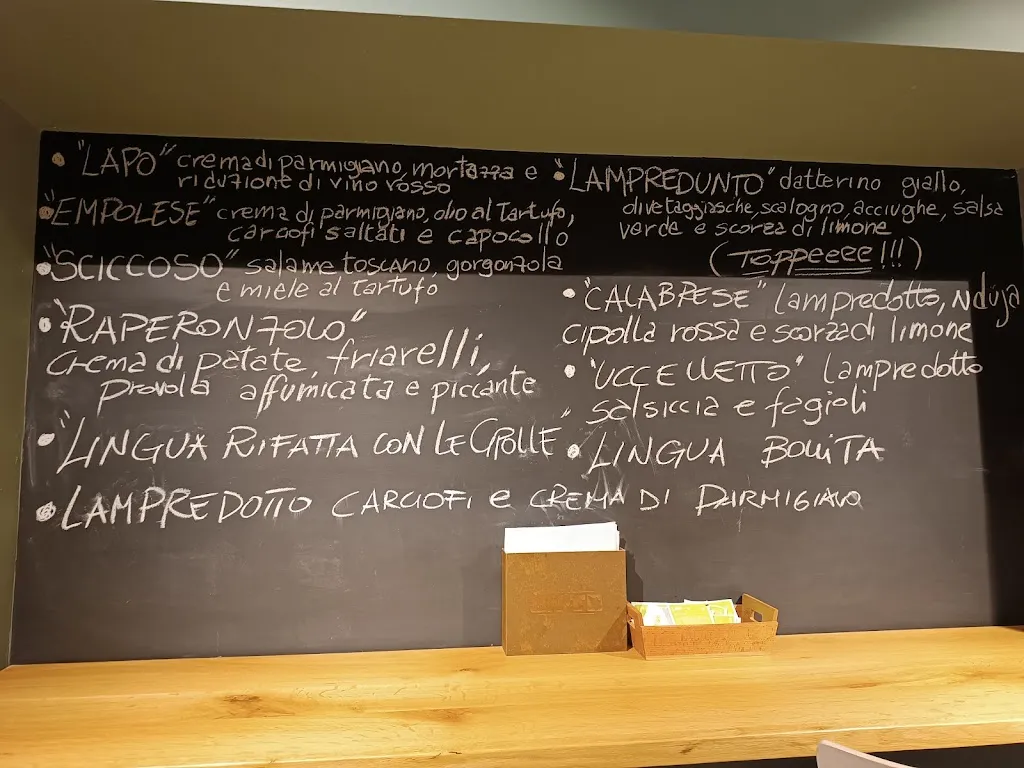 • "LAPO" crema di parmigiano, mortazza e
riduzione di vino rosso
• "EMPOLESE" crema di parmigiano, olio al Tartufo,
carciofi saltati e capocollo
• "SCICCOSO" salame toscano, gorgonzola
e miele al Tartufo
• "RAPERONZOLO"
crema di patate, friarelli,
provola affumicata e piccante
• "LINGUA RIFATTA CON LE CIPOLLE"
• LAMPREDOTTO CARCIOFI e CREMA DI PARMIGIANO
• "LAMPREDUNTO" datterino giallo,
olive taggiasche, scalogno, acciughe, salsa
verde e scorza di limone
(Toppeeee!!!)
• "CALABRESE" lampredotto, Nduja
cipolla rossa e scorza di limone
• "UCCELLETTO" lampredotto
salsiccia e fagioli
• LINGUA BOLLITA